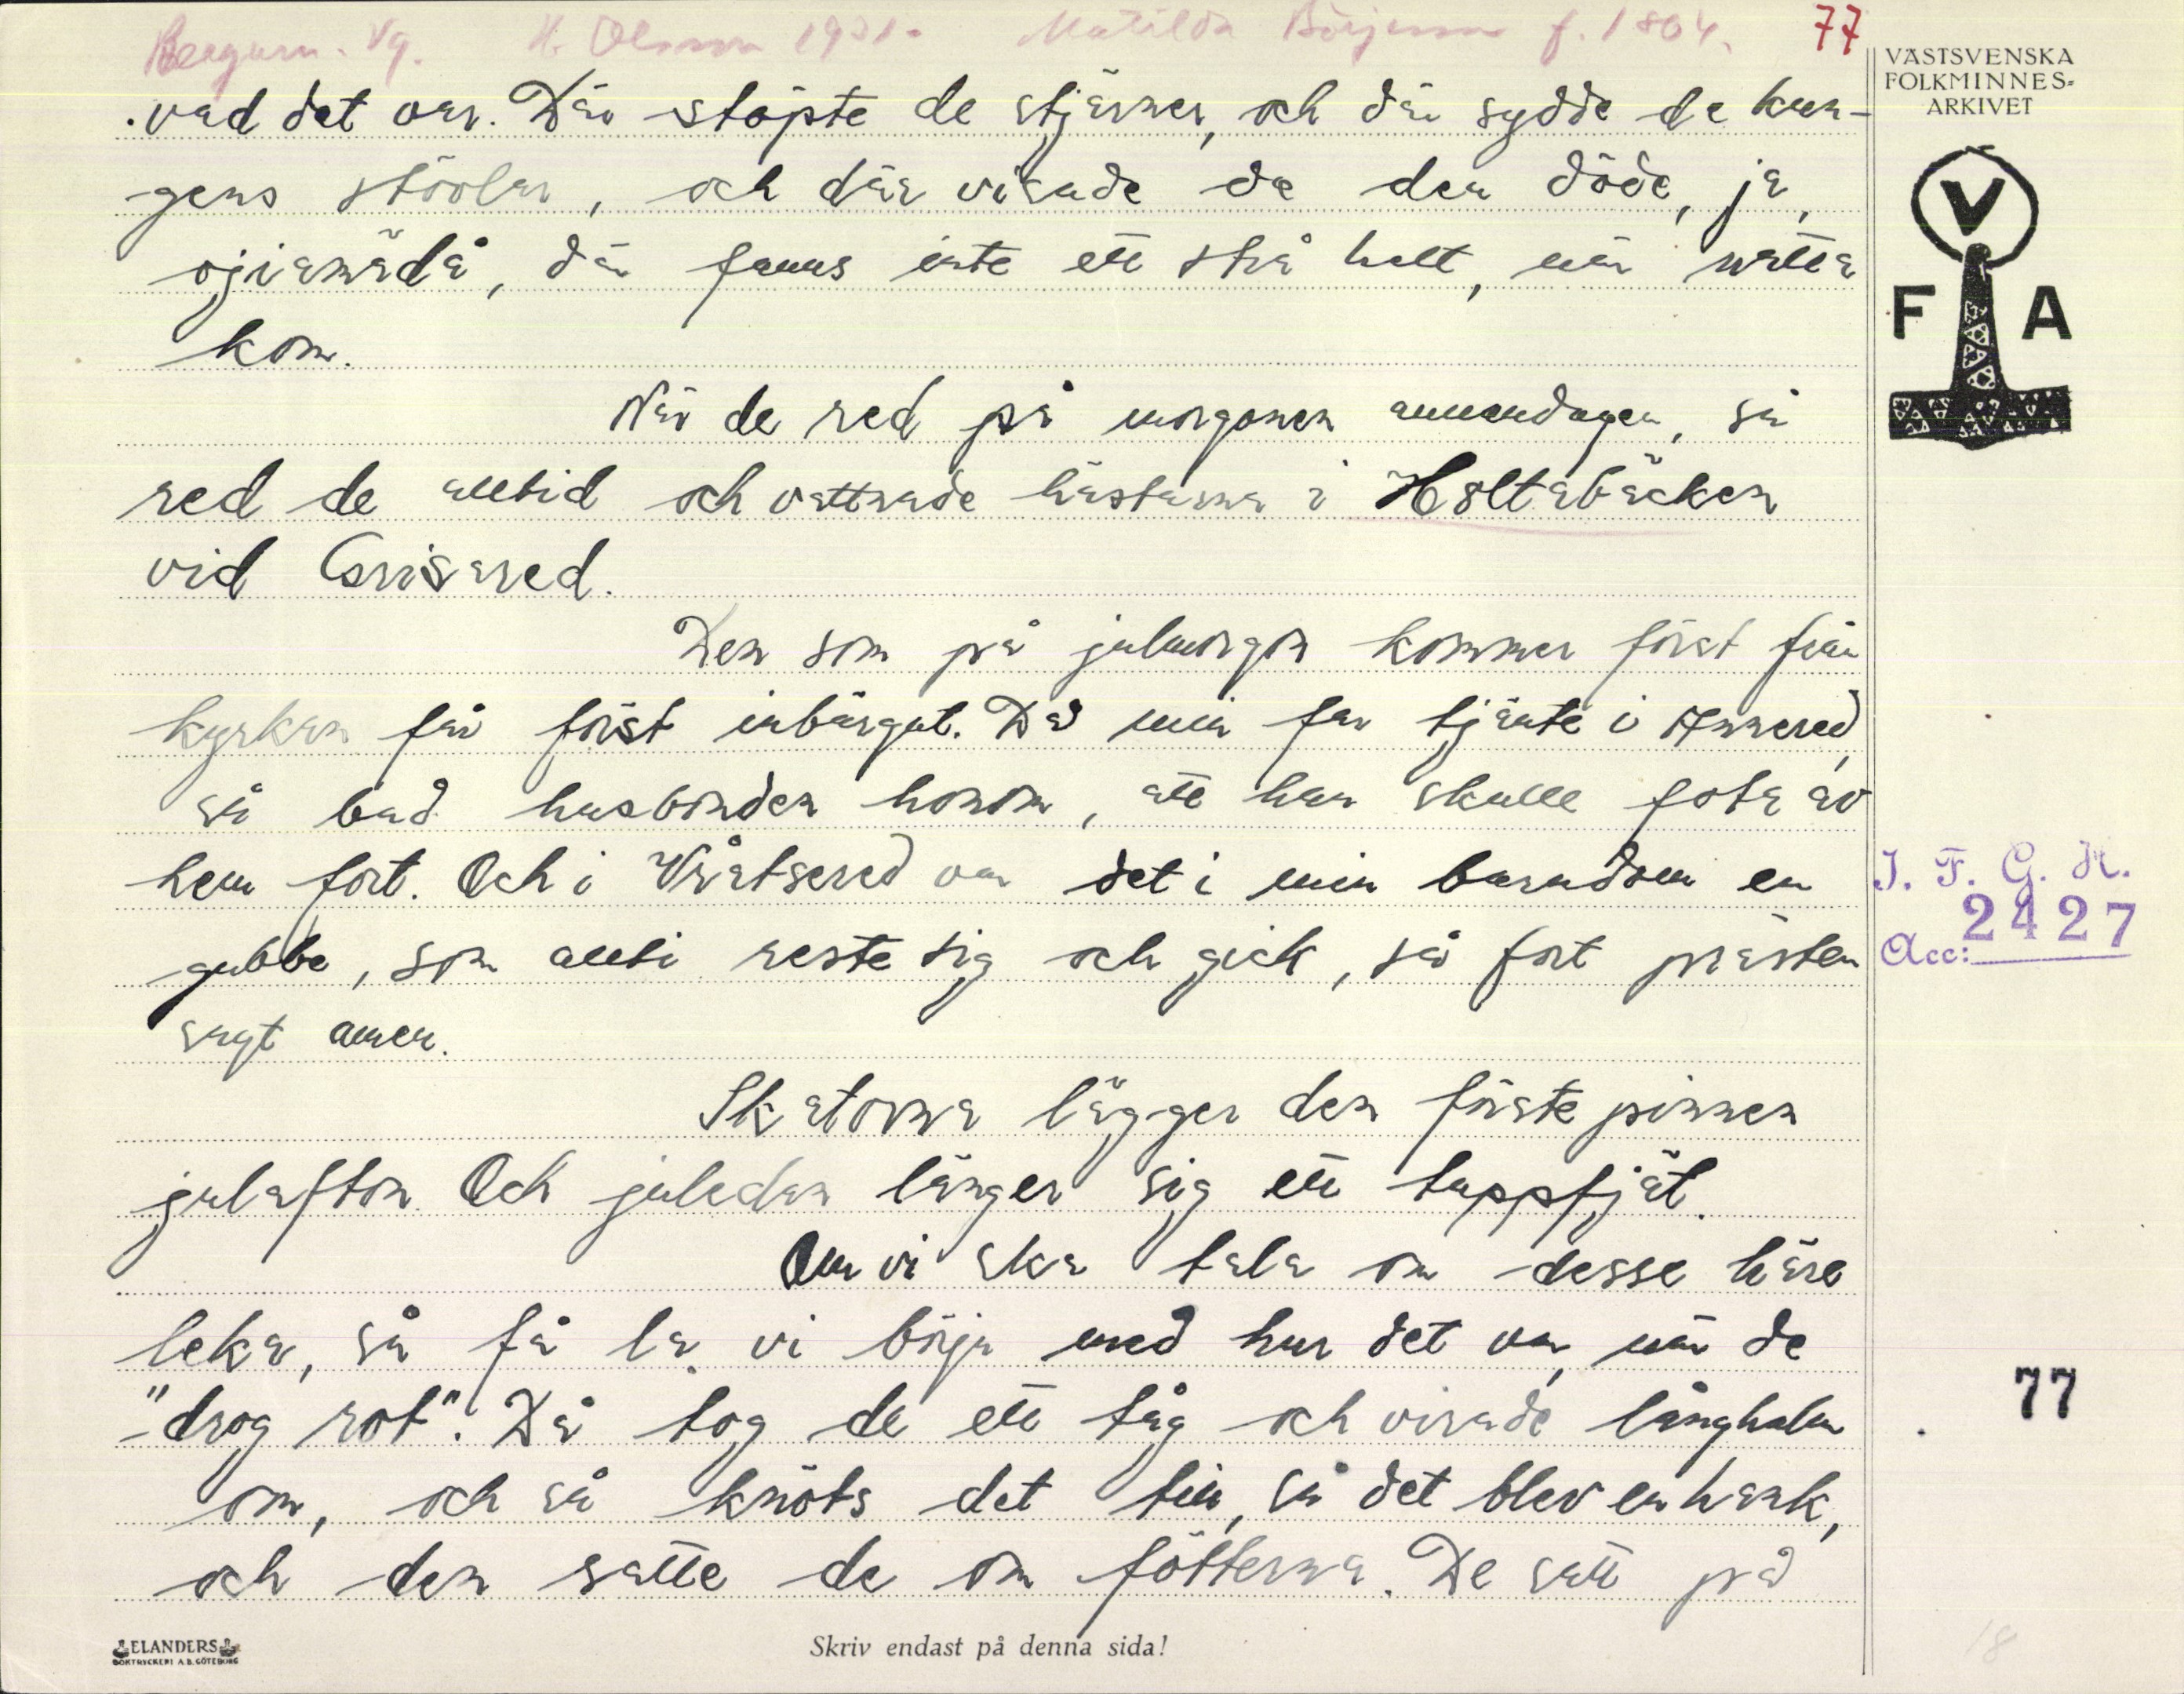 Bergum. Vg. H. Olsson 1931. Matilda Börjesson f. 1864. 77
VÄSTSVENSKA
FOLKMINNES-
ARKIVET
V
F A
vad det var. Där stöpte de stjärner, och där sydde de kun-
gens stövlar, och där visade de den döde, ja,
ojianådå, där fanns inte ett strå helt, när natta
kom.
När de red på morgonen annandagen, så
red de alltid och vattnade hästarna i Holtabäcken
vid Grisared.
Den som på julmorgon kommer först från
kyrkan får först inbärgat. Då min far tjänte i Annered,
så bad husbonden honom, att han skulle fota av
hem fort. Och i Våtsered var det i min barndom en
gubbe, som allti reste sig och gick, så fort prästen
sagt amen.
Skatorna lägger den förste pinnen
julafton. Och juledan länger sig ett tuppfjät.
Om vi ska tala om desse häre
leka, så få la vi börja med hur det var, när de
"drog rot". Då tog de ett tåg och virade långhalm
om, och så knöts det till, så det blev en hank,
och den satte de om fötterna. De satt på
I. F. G. H.
2427
Acc:
77
ELANDERS
BOKTRYCKERI A.B. GÖTEBORG
Skriv endast på denna sida!
18